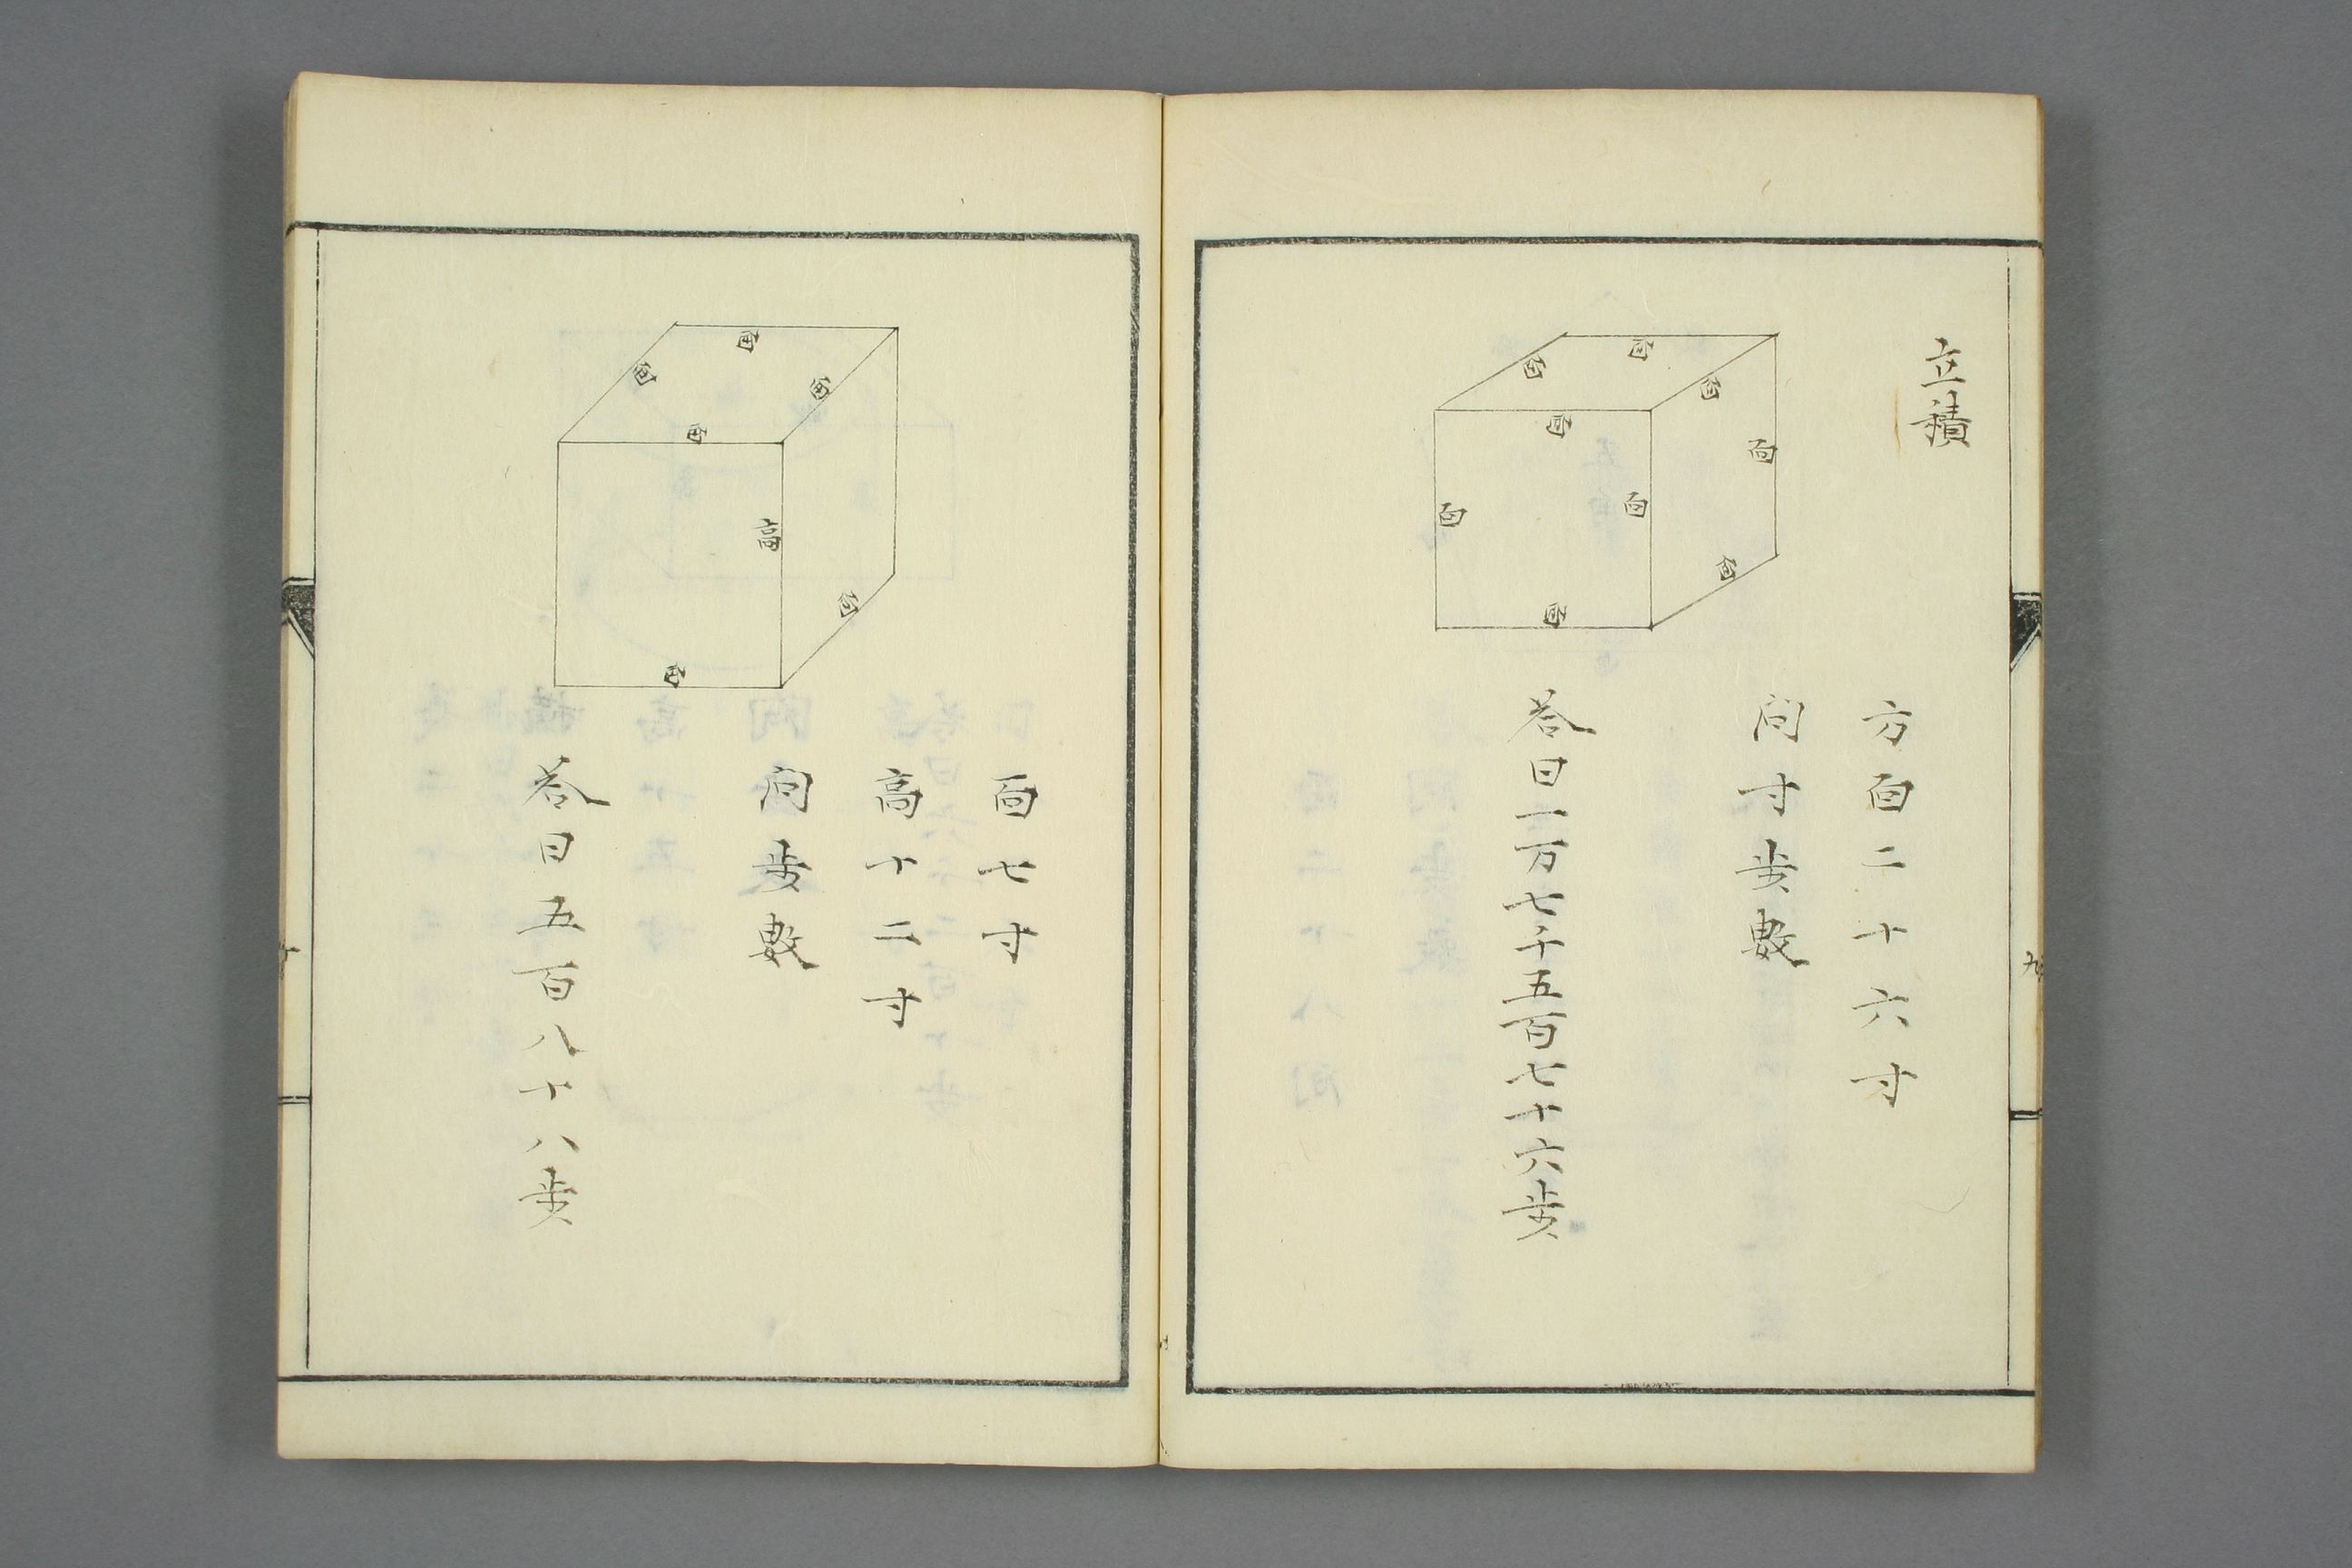 立積
面
面
面
面
面
面
面
面
面
方面二十六寸
問寸歩數
答曰一万七千五百七十六歩
九
面
面
面
面
高
面
面
面七寸
高十二寸
問歩數
答曰五百八十八歩
十